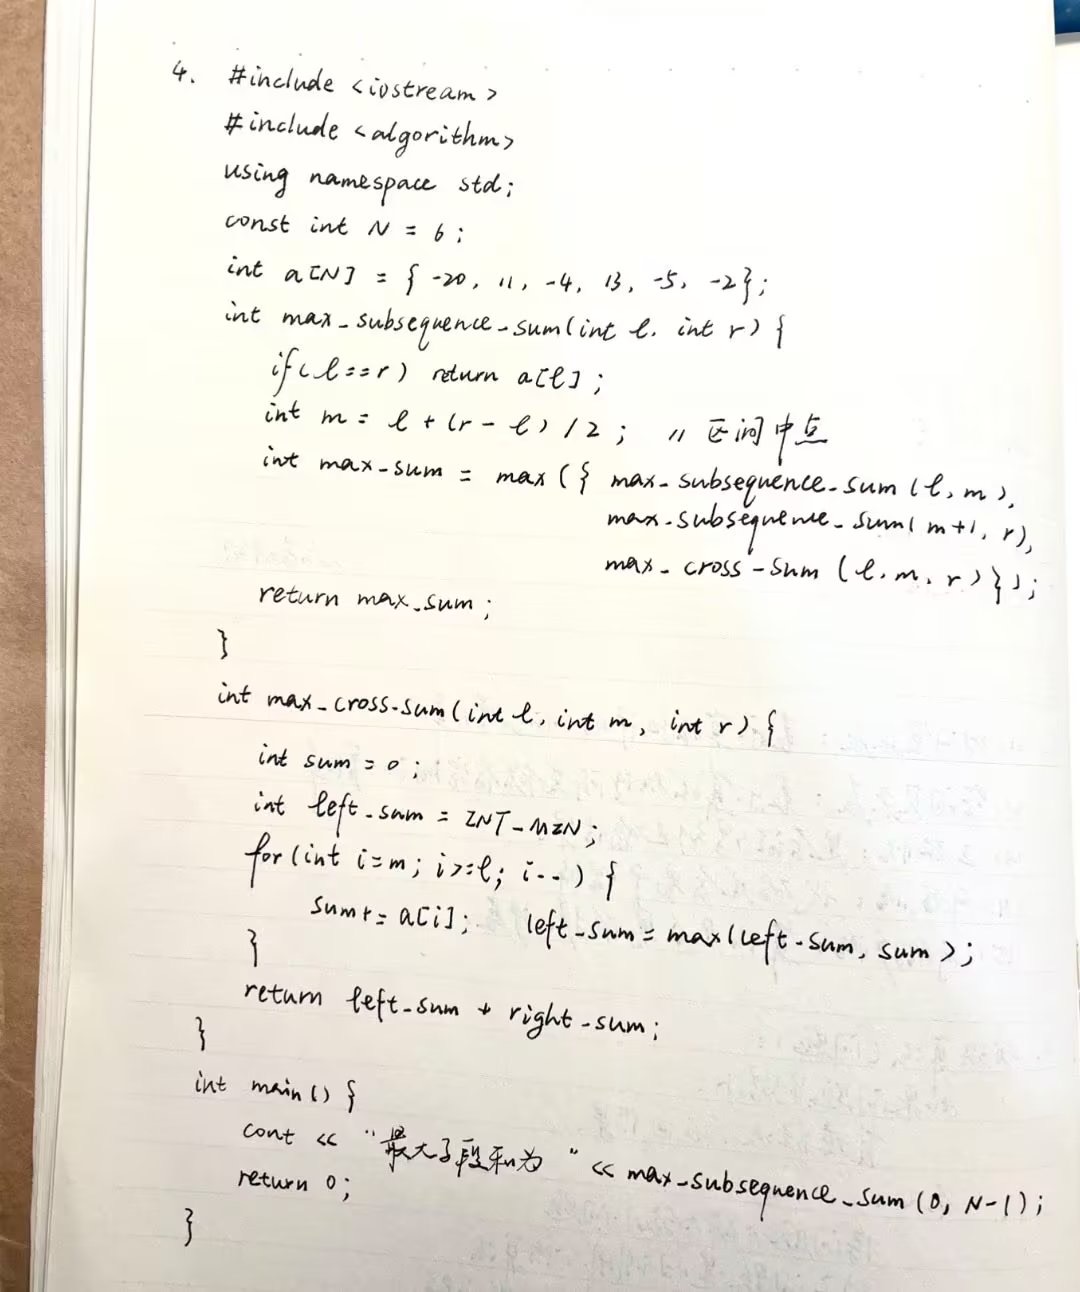 4. #include <iostream>
#include <algorithm>
using namespace std;
const int N = 6;
int a[N] = { -20, 11, -4, 13, -5, -2};
int max_subsequence_sum(int l, int r) {
if(l==r) return a[l];
int m = l + (r - l) / 2; // 区间中点
int max_sum = max({ max_subsequence_sum(l, m),
max_subsequence_sum(m+1, r),
max_cross_sum(l, m, r)});
return max_sum;
}
int max_cross_sum(int l, int m, int r) {
int sum = 0;
int left_sum = INT_MIN;
for(int i=m; i>=l; i--) {
sum+= a[i]; left_sum = max(left_sum, sum);
}
return left_sum + right_sum;
}
int main() {
cout << "最大子段和为" << max_subsequence_sum(0, N-1);
return 0;
}